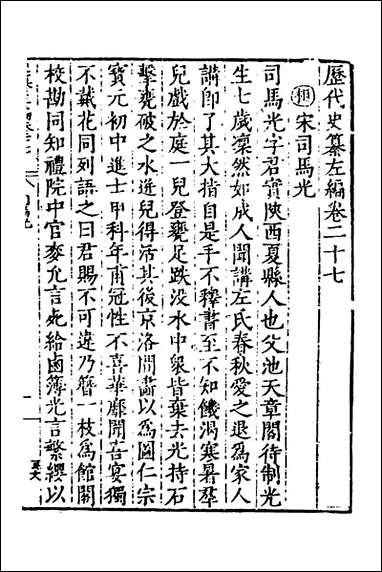 歷代史纂左編卷二十七
相 宋司馬光
司馬光字君實陝西夏縣人也父池天章閣待制光
生七歲凛然如成人聞講左氏春秋愛之退爲家人
講卽了其大指自是手不釋書至不知饑渴寒暑羣
兒戲於庭一兒登甕足跌没水中衆皆棄去光持石
擊甕破之水迸兒得活其後京洛間畵以爲圖仁宗
寶元初中進士甲科年甫冠性不喜華靡聞喜宴獨
不戴花同列語之曰君賜不可違乃簪一枝爲館閣
校勘同知禮院中官麥允言死給鹵簿光言繁纓以